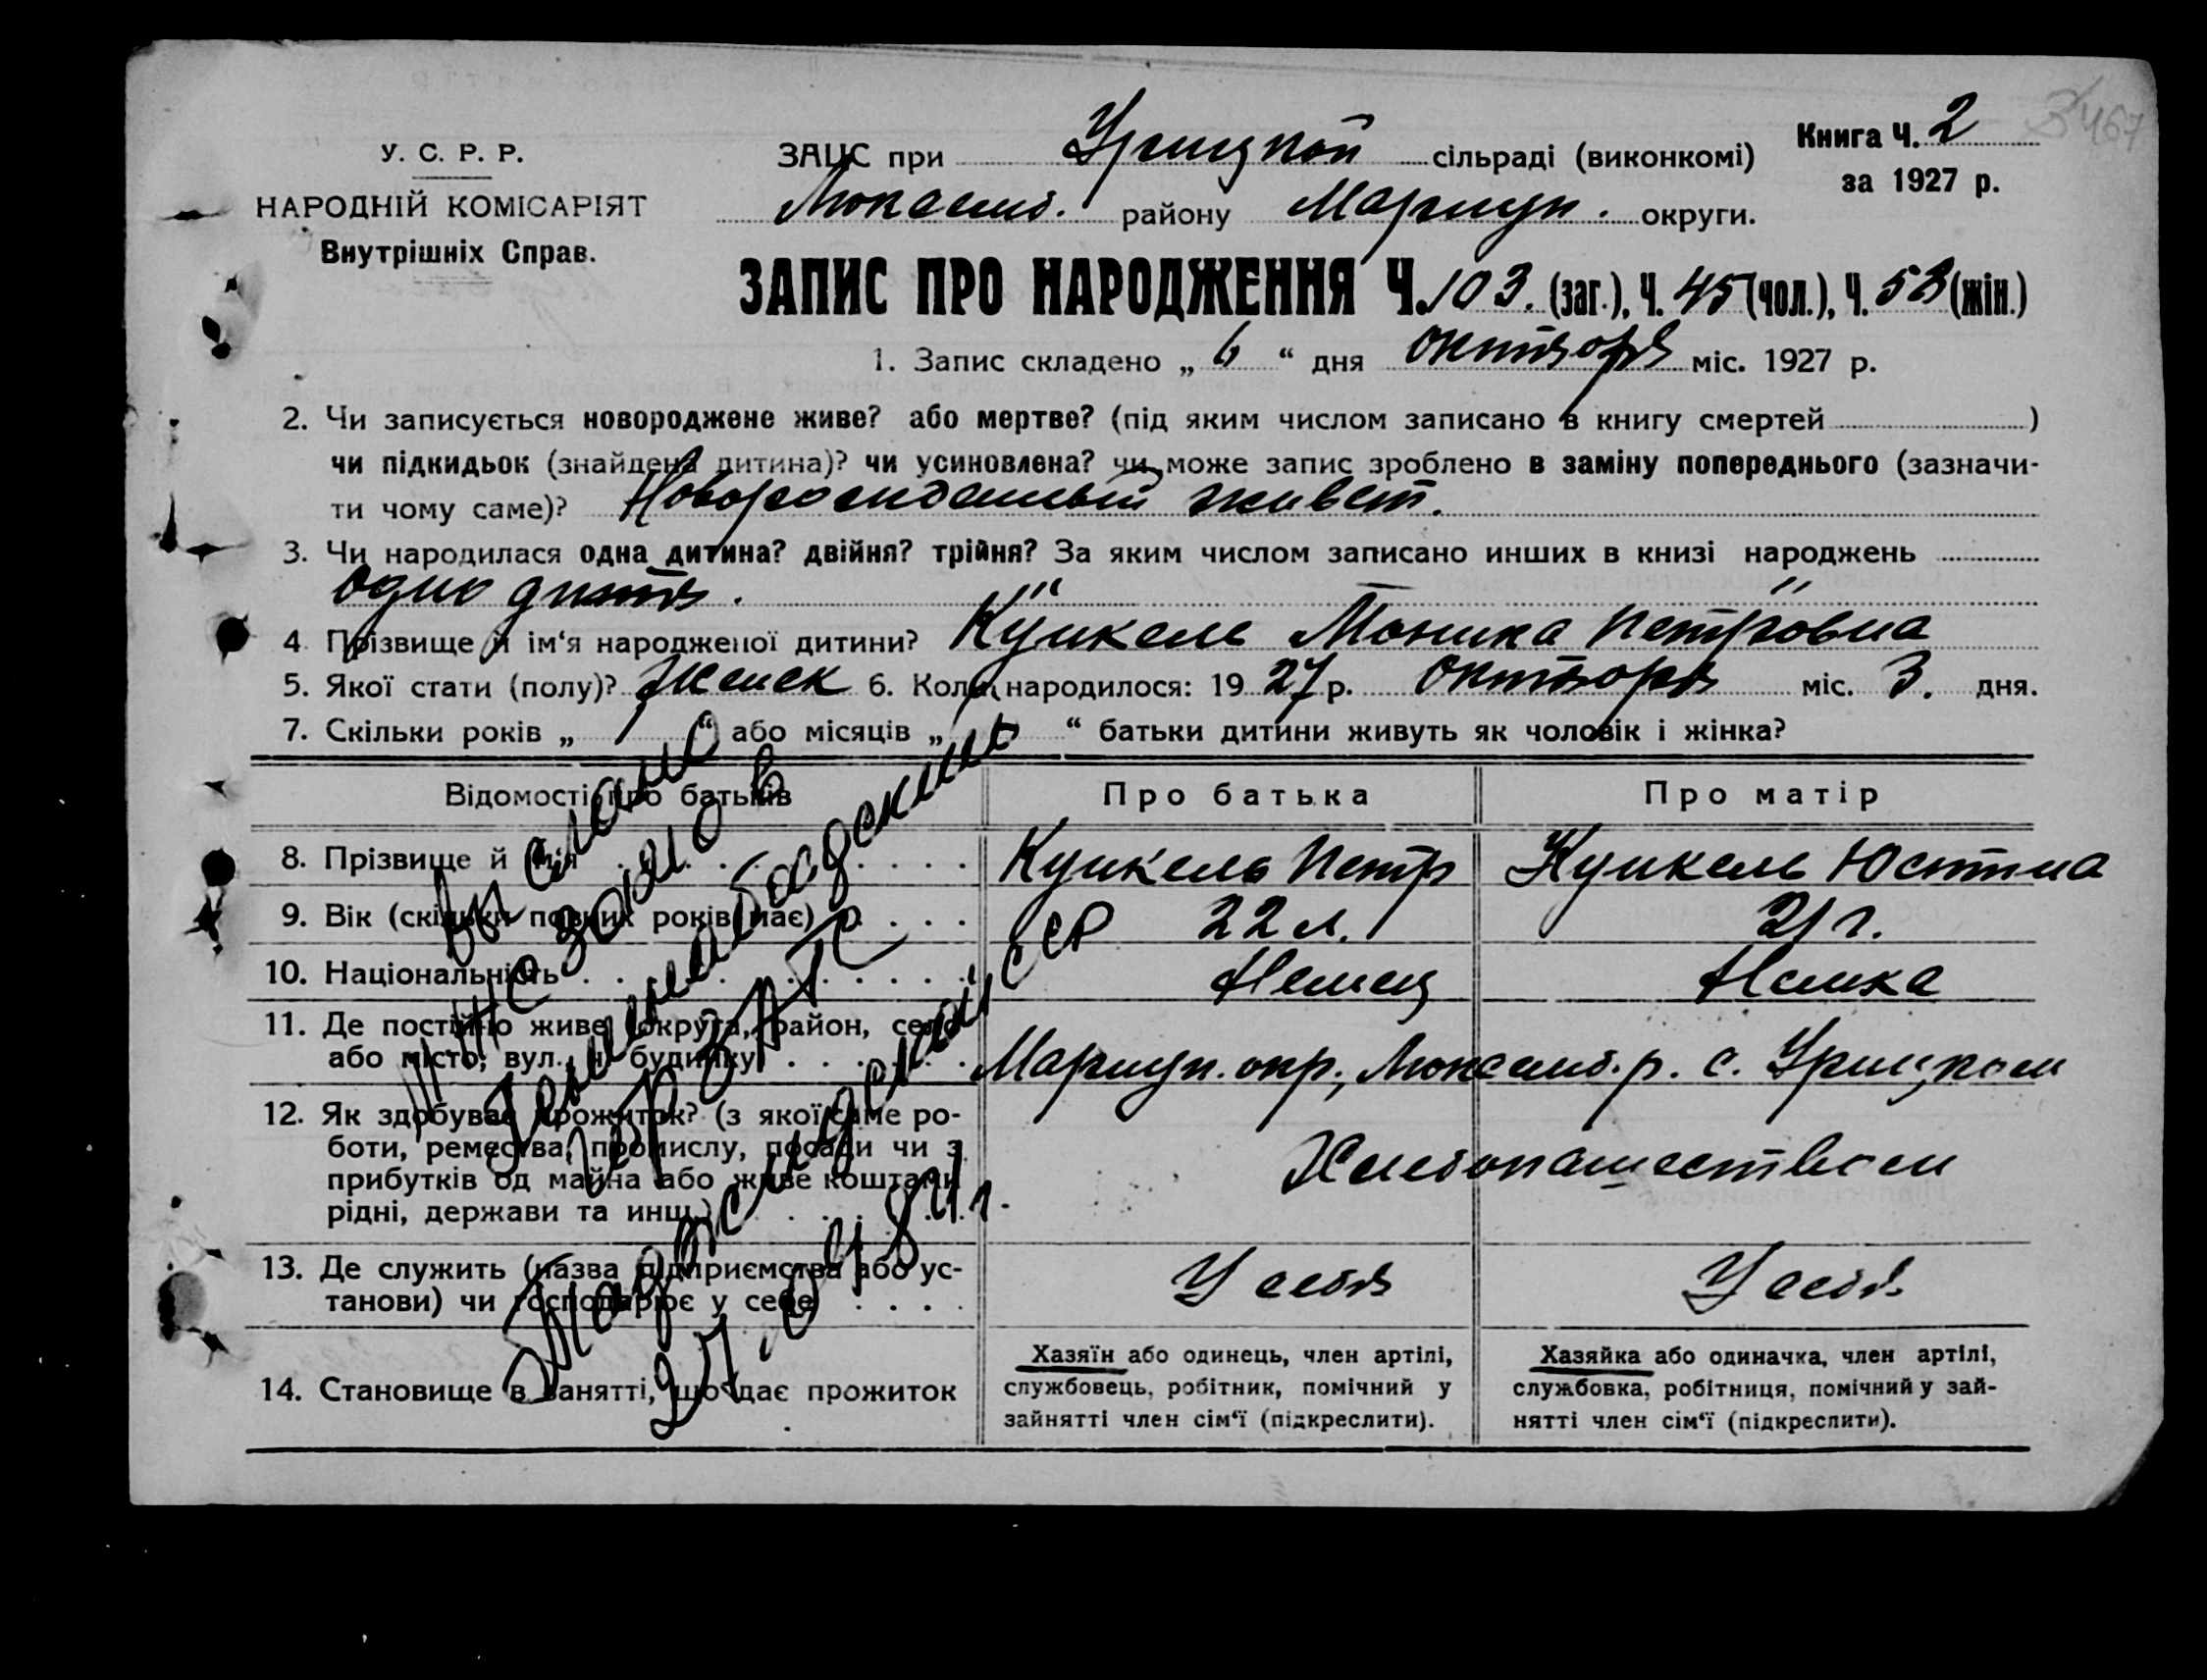 У. С. Р. Р.
НАРОДНІЙ КОМІСАРІЯТ
Внутрішніх Справ.
ЗАЦС при Урицкой сільраді (виконкомі)
Люксемб. району Мариуп. округи.
Книга Ч. 2
за 1927 р.
467
ЗАПИС ПРО НАРОДЖЕННЯ Ч. 103. (заг.), Ч. 45 (чол.), Ч. 58 (жін.)
1. Запис складено „ 6 “ дня октября міс. 1927 р.
2. Чи записується новороджене живе? або мертве? (під яким числом записано в книгу смертей )
чи підкидьок (знайдена дитина)? чи усиновлена? чи може запис зроблено в заміну попереднього (зазначи-
ти чому саме)? Новорожденный живет.
3. Чи народилася одна дитина? двійня? трійня? За яким числом записано инших в книзі народжень
одно дитя.
4 Прізвище й ім‘я народженої дитини? Кункель Моника Петровна
5. Якої стати (полу)? Женск 6. Коли народилося: 19 27 р. октября міс. 3. дня.
7. Скільки років „ 1 “ або місяців „ “ батьки дитини живуть як чоловік і жінка?
Відомості про батьків
Про батька
Про матір
8. Прізвище й ім‘я
Кункель Петр
Кункель Юстина
9. Вік (скільки повних років має)
22 л.
21 г.
10. Національність
Немец
Немка
11. Де постійно живе (округа, район, село
або місто, вул. й будинку)
Мариуп. окр., Люксемб. р. с. Урицком
12. Як здобуває прожиток? (з якої саме ро-
боти, ремества, промислу, посади чи з
прибутків од майна або живе коштами
рідні, держави та инш.)
Хлебопашеством
13. Де служить (назва підприємства або ус-
танови) чи господарює у себе
У себя
У себя
14. Становище в занятті, що дає прожиток
Хазяїн або одинець, член артілі,
службовець, робітник, помічний у
зайнятті член сім‘ї (підкреслити).
Хазяйка або одиначка, член артілі,
службовка, робітниця, помічний у зай-
нятті член сім‘ї (підкреслити).
Выслано
в
Ленинабадский
ЗАГС
Таджикской ССР